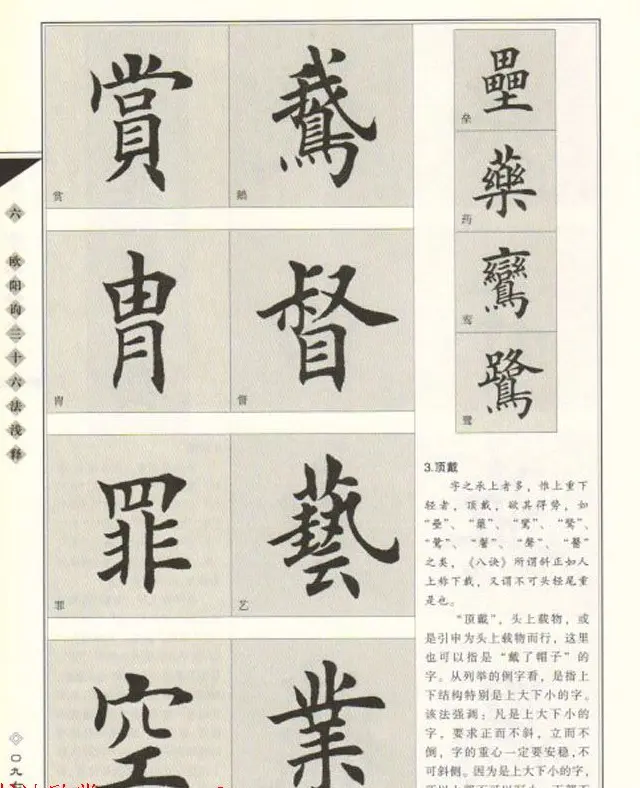 六 欧阳询三十六法浅释
〇九
賞
赏
鵝
鹅
冑
胄
督
督
罪
罪
藝
艺
空
業
壘
垒
藥
药
鸞
鸾
鷺
鹭
3.顶戴
字之承上者多，惟上重下
轻者，顶戴，欲其得势，如
“壘”、“藥”、“鸞”、“驚”、
“鷺”、“髻”、“聲”、“醫”
之类，《八诀》所谓斜正如人
上称下载，又谓不可头轻尾重
是也。
“顶戴”，头上载物，或
是引申为头上载物而行，这里
也可以指是“戴了帽子”的
字。从列举的例字看，是指上
下结构特别是上大下小的字。
该法强调：凡是上大下小的
字，要求正而不斜，立而不
倒，字的重心一定要安稳，不
可斜侧。因为是上大下小的字，